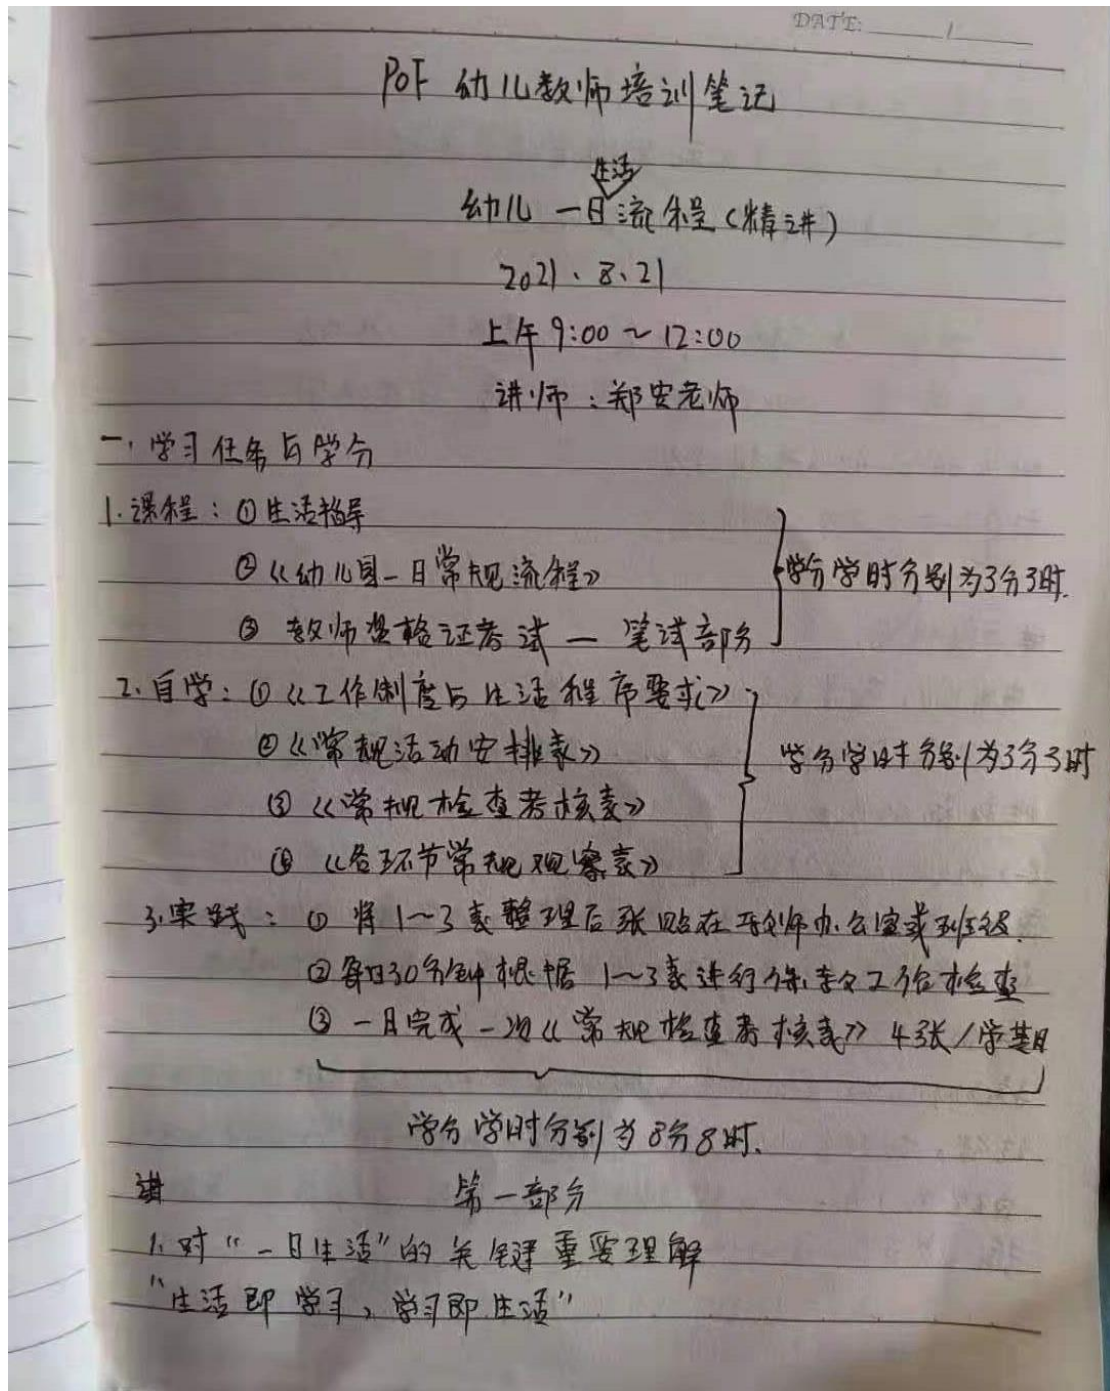 DATE: /
POF 幼儿教师培训笔记
生活
幼儿一日流程(精讲)
2021、8、21
上午9:00~12:00
讲师:郑安老师
一、学习任务与学分
1.课程:①生活指导
②《幼儿园一日常规流程》
学分学时分别为3分3时.
③教师资格证考试—笔试部分
2.自学:①《工作制度与生活程序要求》
②《常规活动安排表》
学分学时分别为3分3时
③《常规检查考核表》
④《各环节常规观察表》
3.实践:①将1~3表整理后张贴在教师办公室或班级.
②每日30分钟根据1~3表进行保教工作检查
③一月完成一次《常规检查考核表》4张/学期
学分学时分别为8分8时.
第一部分
1.对“一日生活”的关键重要理解
“生活即学习,学习即生活”